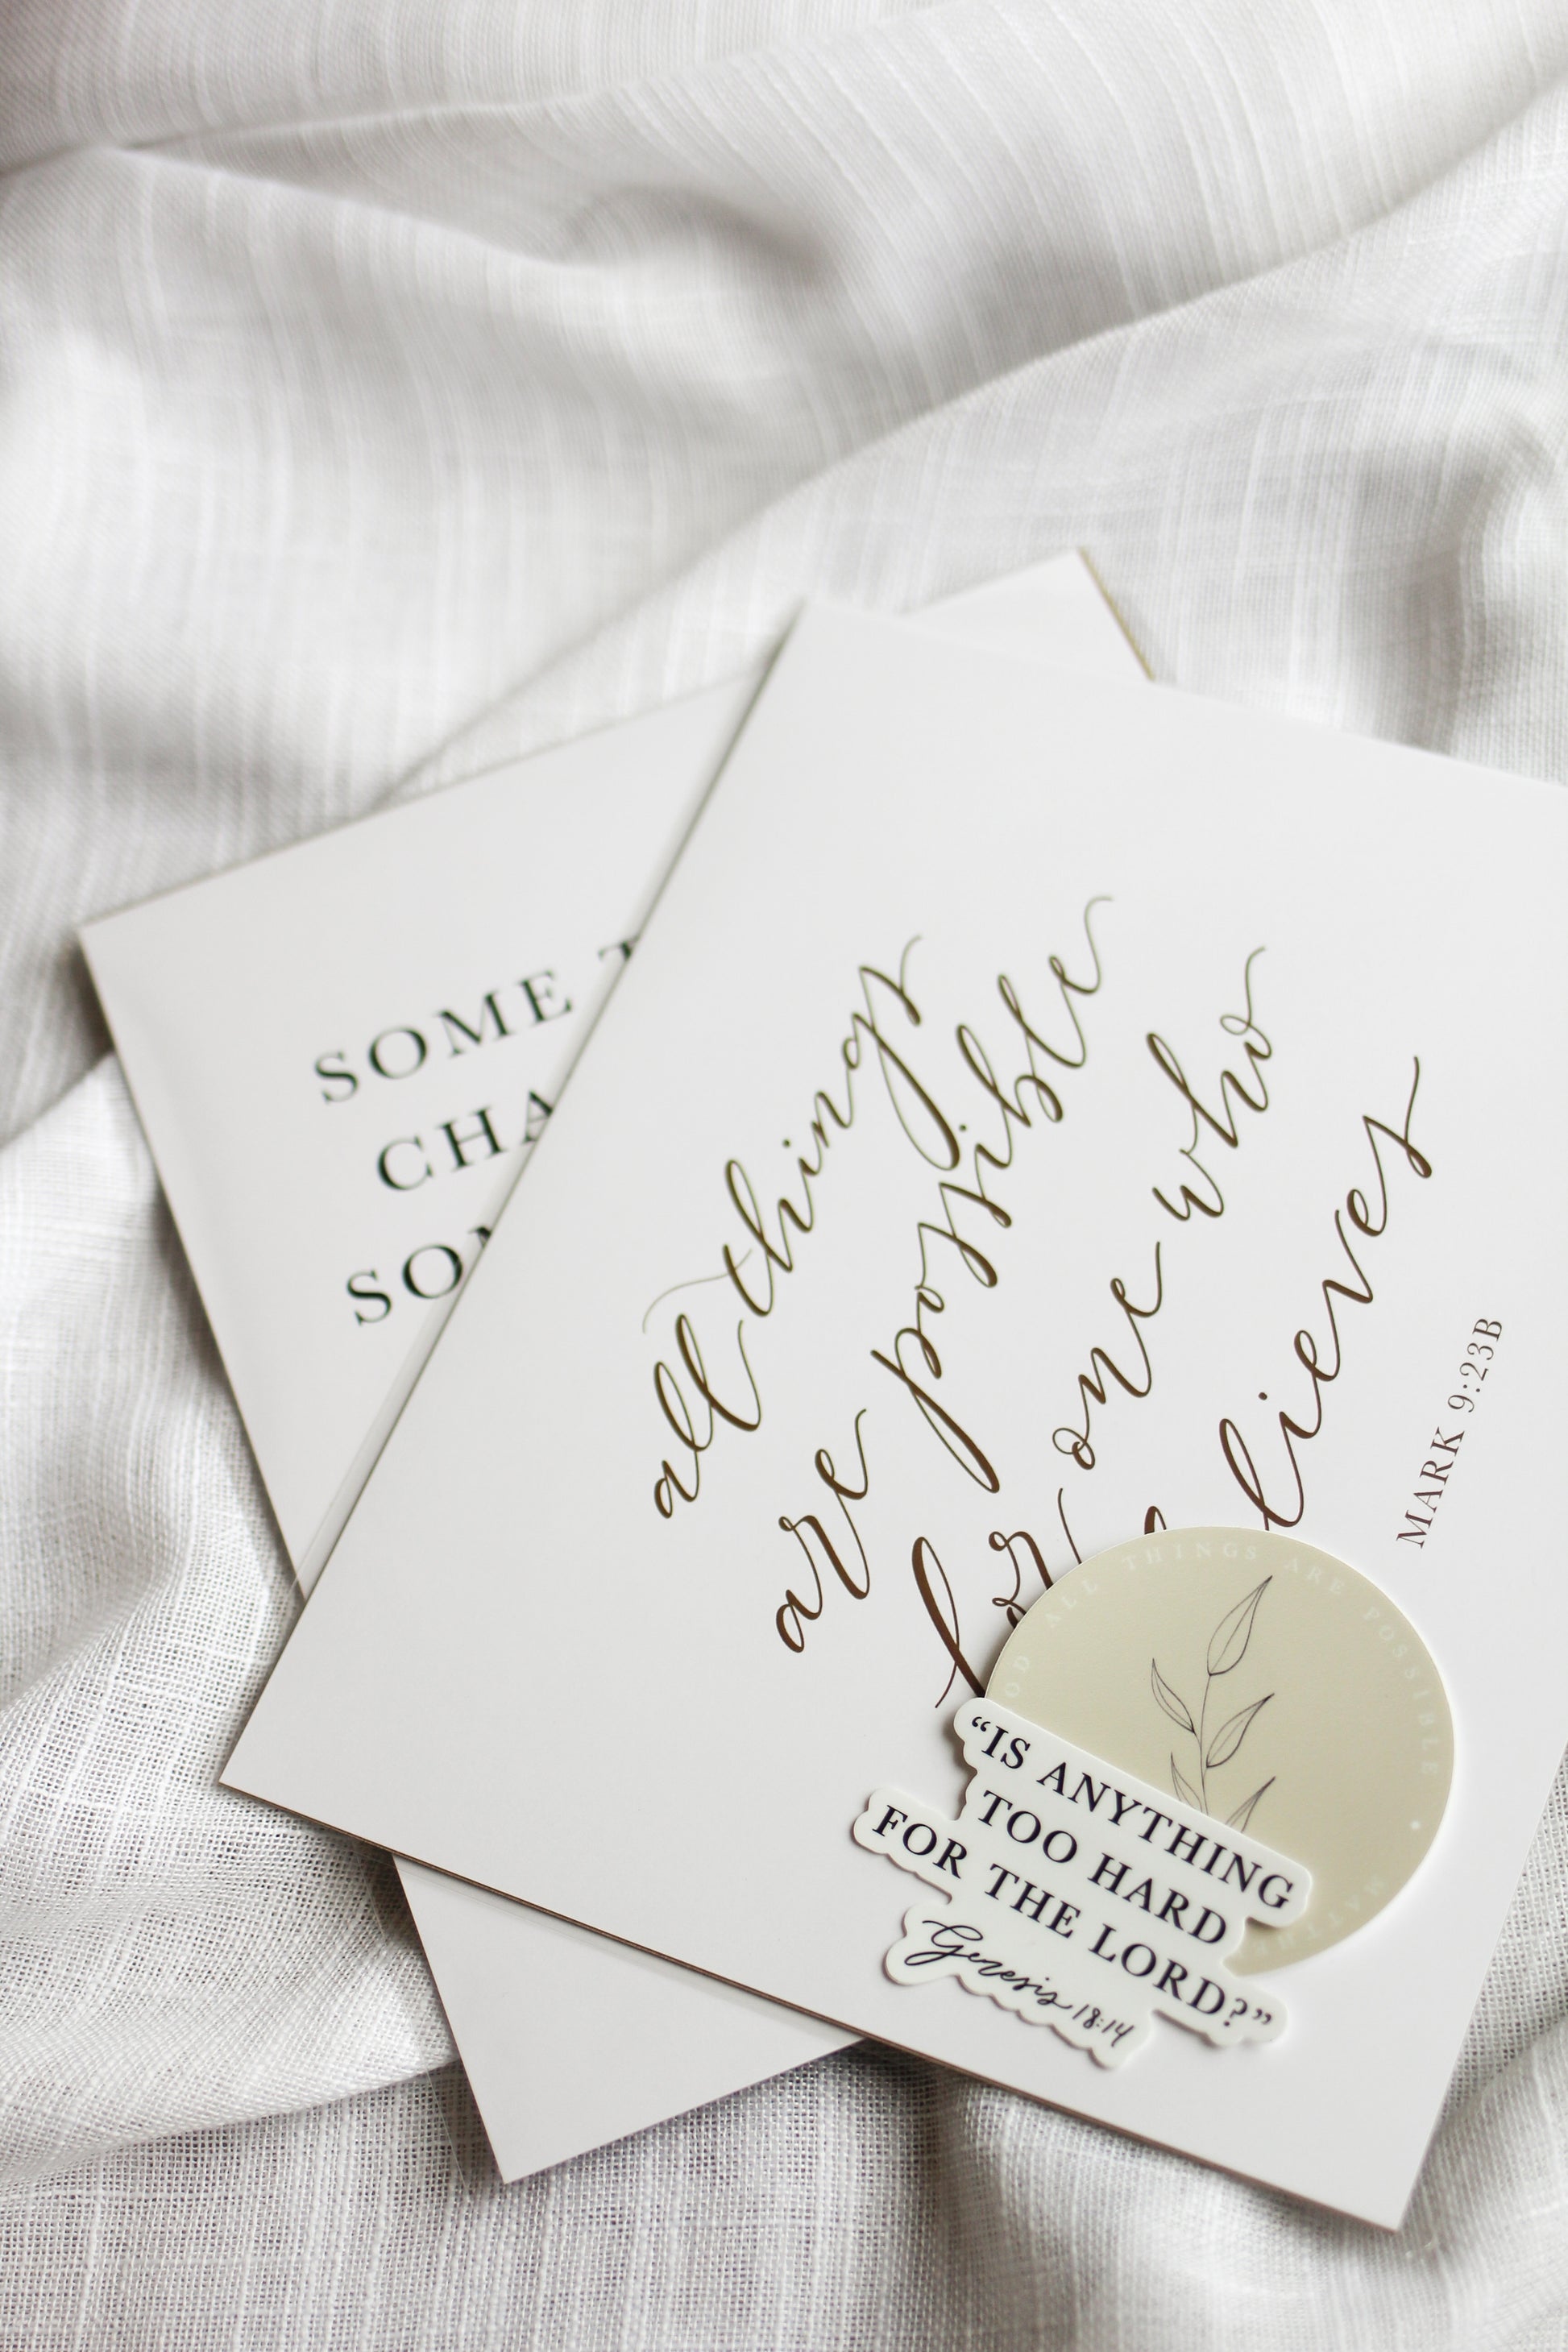 SOME T
CHA
SO
all things
are possible
for one who
believes
MARK 9:23B
OD ALL THINGS ARE POSSIBLE • MATTHE
“IS ANYTHING
TOO HARD
FOR THE LORD?”
Genesis 18:14